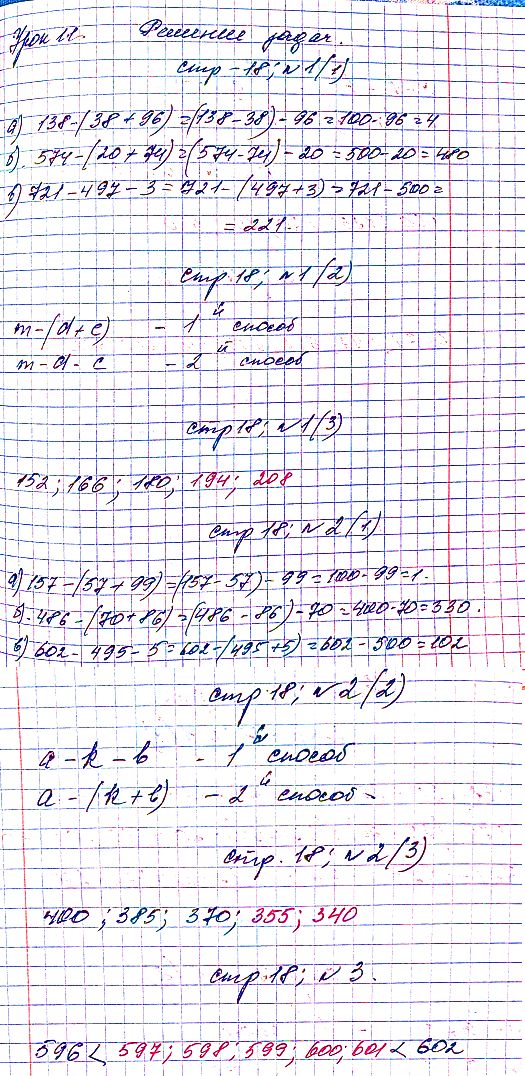 Урок 11. Решение задач.
стр - 18; №1(1)
а) 138-(38+96)=(138-38)-96=100-96=4
б) 574-(20+74)=(574-74)-20=500-20=480
в) 721-497-3=721-(497+3)=721-500=
=221.
стр 18; №1(2)
m-(d+c) - 1й способ
m-d-c - 2й способ
стр 18; №1(3)
152; 166; 180; 194; 208
стр 18; №2(1)
а) 157-(57+99)=(157-57)-99=100-99=1.
б) 486-(70+86)=(486-86)-70=400-70=330.
в) 602-495-5=602-(495+5)=602-500=102
стр 18; №2(2)
a-k-b - 1й способ
a-(k+b) - 2й способ
стр. 18; №2(3)
400; 385; 370; 355; 340
стр 18; №3.
596 < 597; 598; 599; 600; 601 < 602